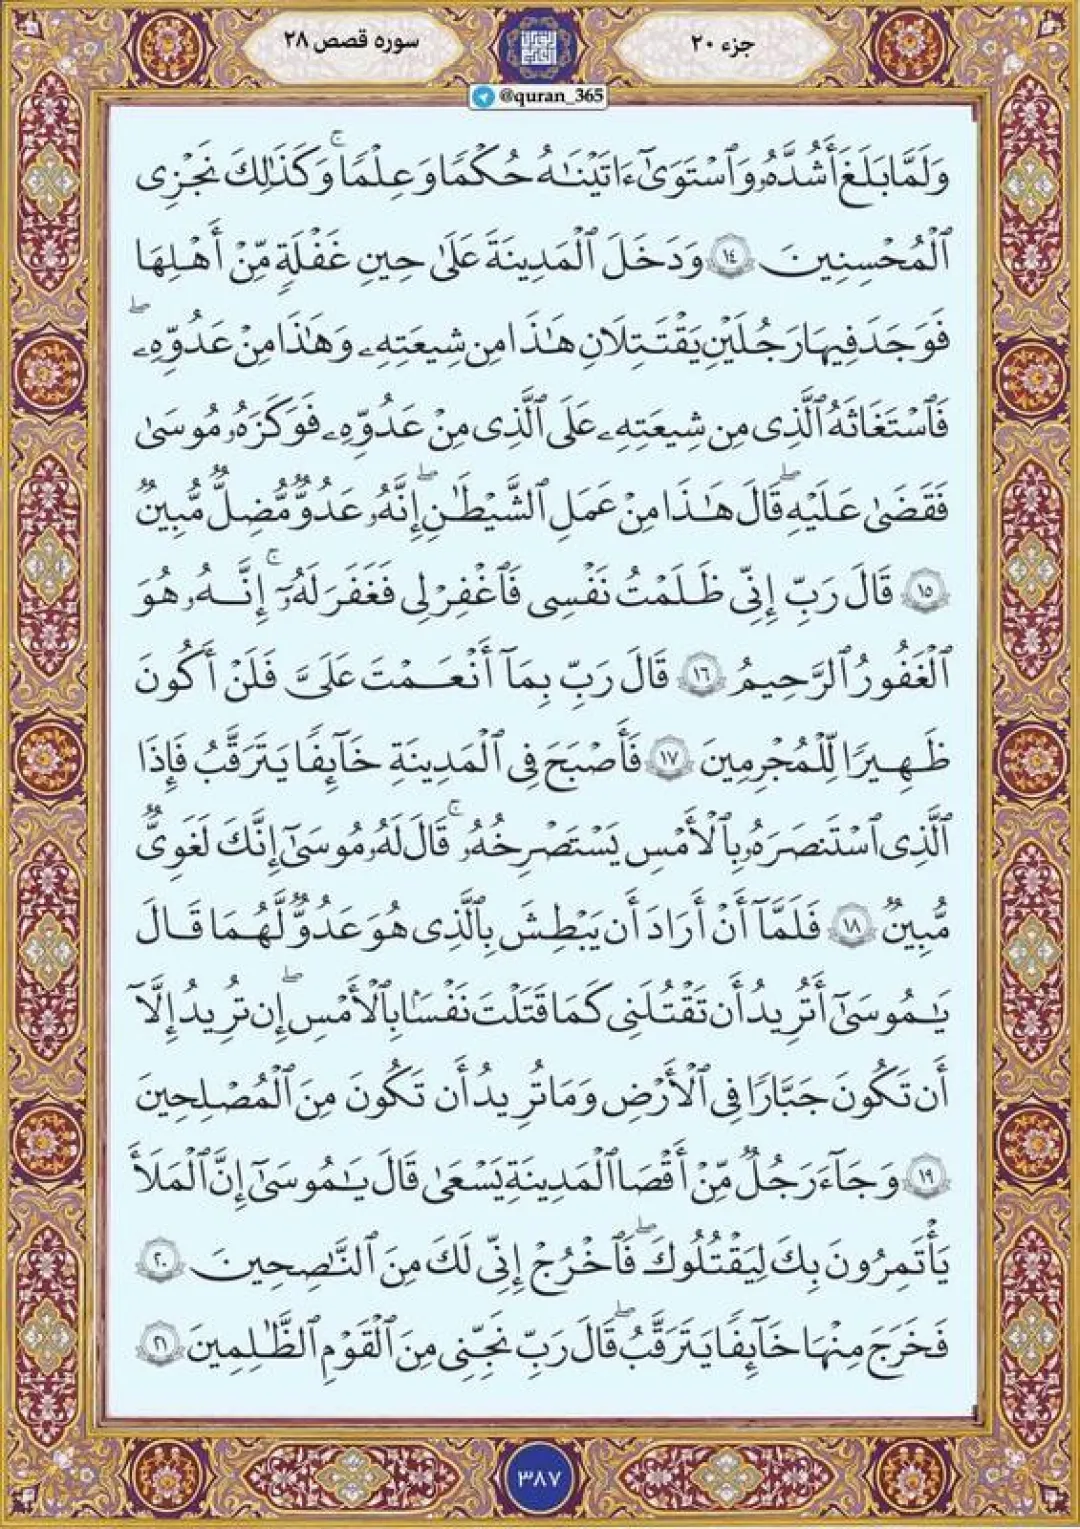 جزء ۲۰
سوره قصص ۲۸
@quran_365
وَلَمَّا بَلَغَ أَشُدَّهُۥ وَٱسْتَوَىٰٓ ءَاتَيْنَـٰهُ حُكْمًا وَعِلْمًا ۚ وَكَذَٰلِكَ نَجْزِى
ٱلْمُحْسِنِينَ ١٤ وَدَخَلَ ٱلْمَدِينَةَ عَلَىٰ حِينِ غَفْلَةٍ مِّنْ أَهْلِهَا
فَوَجَدَ فِيهَا رَجُلَيْنِ يَقْتَتِلَانِ هَـٰذَا مِن شِيعَتِهِۦ وَهَـٰذَا مِنْ عَدُوِّهِۦ ۖ
فَٱسْتَغَـٰثَهُ ٱلَّذِى مِن شِيعَتِهِۦ عَلَى ٱلَّذِى مِنْ عَدُوِّهِۦ فَوَكَزَهُۥ مُوسَىٰ
فَقَضَىٰ عَلَيْهِ ۖ قَالَ هَـٰذَا مِنْ عَمَلِ ٱلشَّيْطَـٰنِ ۖ إِنَّهُۥ عَدُوٌّ مُّضِلٌّ مُّبِينٌ
١٥ قَالَ رَبِّ إِنِّى ظَلَمْتُ نَفْسِى فَٱغْفِرْ لِى فَغَفَرَ لَهُۥٓ ۚ إِنَّهُۥ هُوَ
ٱلْغَفُورُ ٱلرَّحِيمُ ١٦ قَالَ رَبِّ بِمَآ أَنْعَمْتَ عَلَىَّ فَلَنْ أَكُونَ
ظَهِيرًا لِّلْمُجْرِمِينَ ١٧ فَأَصْبَحَ فِى ٱلْمَدِينَةِ خَآئِفًا يَتَرَقَّبُ فَإِذَا
ٱلَّذِى ٱسْتَنصَرَهُۥ بِٱلْأَمْسِ يَسْتَصْرِخُهُۥ ۚ قَالَ لَهُۥ مُوسَىٰٓ إِنَّكَ لَغَوِىٌّ
مُّبِينٌ ١٨ فَلَمَّآ أَنْ أَرَادَ أَن يَبْطِشَ بِٱلَّذِى هُوَ عَدُوٌّ لَّهُمَا قَالَ
يَـٰمُوسَىٰٓ أَتُرِيدُ أَن تَقْتُلَنِى كَمَا قَتَلْتَ نَفْسًۢا بِٱلْأَمْسِ ۖ إِن تُرِيدُ إِلَّآ
أَن تَكُونَ جَبَّارًا فِى ٱلْأَرْضِ وَمَا تُرِيدُ أَن تَكُونَ مِنَ ٱلْمُصْلِحِينَ
١٩ وَجَآءَ رَجُلٌ مِّنْ أَقْصَا ٱلْمَدِينَةِ يَسْعَىٰ قَالَ يَـٰمُوسَىٰٓ إِنَّ ٱلْمَلَأَ
يَأْتَمِرُونَ بِكَ لِيَقْتُلُوكَ ۖ فَٱخْرُجْ إِنِّى لَكَ مِنَ ٱلنَّـٰصِحِينَ ٢٠
فَخَرَجَ مِنْهَا خَآئِفًا يَتَرَقَّبُ ۖ قَالَ رَبِّ نَجِّنِى مِنَ ٱلْقَوْمِ ٱلظَّـٰلِمِينَ ٢١
٣٨٧